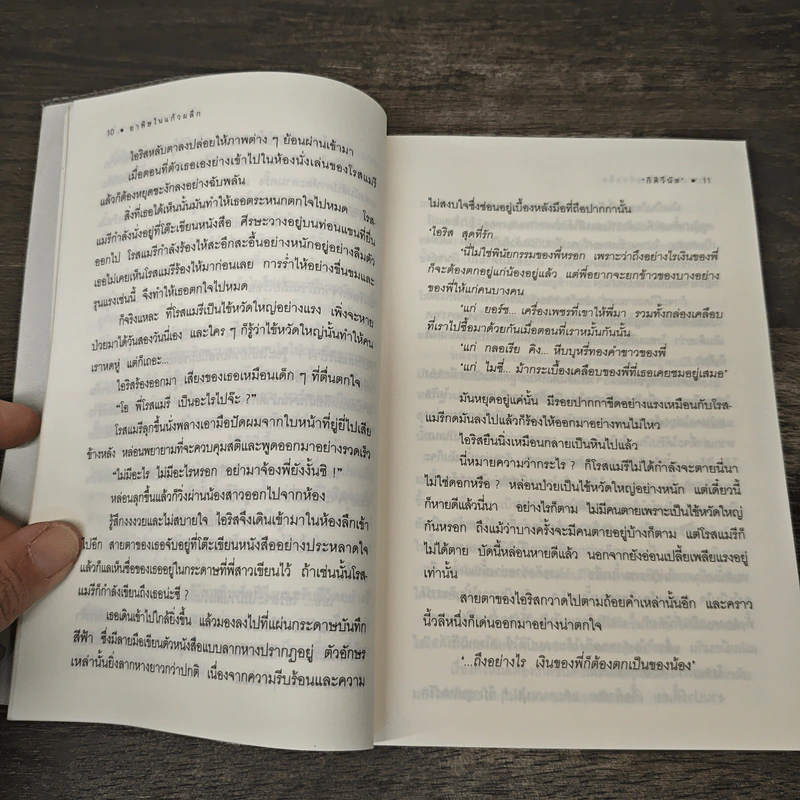 10 • ยาพิษในแก้วผลึก
ไอริสหลับตาลงปล่อยให้ภาพต่าง ๆ ย้อนผ่านเข้ามา
เมื่อตอนที่ตัวเธอเองย่างเข้าไปในห้องนั่งเล่นของโรสแมรี่
แล้วก็ต้องหยุดชะงักลงอย่างฉับพลัน
สิ่งที่เธอได้เห็นนั้นมันทำให้เธอตระหนกตกใจไปหมด โรส-
แมรี่กำลังนั่งอยู่ที่โต๊ะเขียนหนังสือ ศีรษะวางอยู่บนท่อนแขนที่ยื่น
ออกไป โรสแมรี่กำลังร้องไห้สะอึกสะอื้นอย่างหนักอยู่อย่างลืมตัว
เธอไม่เคยเห็นโรสแมรี่ร้องไห้มาก่อนเลย การร่ำไห้อย่างขื่นขมและ
รุนแรงเช่นนี้ จึงทำให้เธอตกใจไปหมด
ก็จริงแหละ ที่โรสแมรี่เป็นไข้หวัดใหญ่อย่างแรง เพิ่งจะหาย
ป่วยมาได้วันสองวันนี่เอง และใคร ๆ ก็รู้ว่าไข้หวัดใหญ่นั้นทำให้คน
เราหดหู่ แต่ก็เถอะ...
ไอริสร้องออกมา เสียงของเธอเหมือนเด็ก ๆ ที่ตื่นตกใจ
“โอ พี่โรสแมรี่ เป็นอะไรไปจ๊ะ ?”
โรสแมรี่ลุกขึ้นนั่งพลางเอามือปัดผมจากใบหน้าที่ยู่ยี่ไปเสีย
ข้างหลัง หล่อนพยายามที่จะควบคุมสติและพูดออกมาอย่างรวดเร็ว
“ไม่มีอะไร ไม่มีอะไรหรอก อย่ามาจ้องพี่ยังงั้นซิ !”
หล่อนลุกขึ้นแล้วก็วิ่งผ่านน้องสาวออกไปจากห้อง
รู้สึกงงงวยและไม่สบายใจ ไอริสจึงเดินเข้ามาในห้องลึกเข้า
ไปอีก สายตาของเธอจับอยู่ที่โต๊ะเขียนหนังสืออย่างประหลาดใจ
แล้วก็แลเห็นชื่อของเธออยู่ในกระดาษที่พี่สาวเขียนไว้ ถ้าเช่นนั้นโรส-
แมรี่ก็กำลังเขียนถึงเธอน่ะซี ?
เธอเดินเข้าไปใกล้ยิ่งขึ้น แล้วมองลงไปที่แผ่นกระดาษบันทึก
สีฟ้า ซึ่งมีลายมือเขียนตัวหนังสือแบบลากหางปรากฏอยู่ ตัวอักษร
เหล่านั้นยิ่งลากหางยาวกว่าปกติ เนื่องจากความรีบร้อนและความ
“กิติวีนัส” • 11
ไม่สงบใจซึ่งซ่อนอยู่เบื้องหลังมือที่ถือปากกานั้น
‘ไอริส สุดที่รัก
‘นี่ไม่ใช่พินัยกรรมของพี่หรอก เพราะว่าถึงอย่างไรเงินของพี่
ก็จะต้องตกอยู่แก่น้องอยู่แล้ว แต่พี่อยากจะยกข้าวของบางอย่าง
ของพี่ให้แก่คนบางคน
‘แก่ ยอร์ช... เครื่องเพชรที่เขาให้พี่มา รวมทั้งกล่องเคลือบ
ที่เราไปซื้อมาด้วยกันเมื่อตอนที่เราหมั้นกันนั้น
‘แก่ กลอเรีย คิง... หีบบุหรี่ทองคำขาวของพี่
‘แก่ ไมซี่... ม้ากระเบื้องเคลือบของพี่ที่เธอเคยชมอยู่เสมอ’
มันหยุดอยู่แค่นั้น มีรอยปากกาขีดอย่างแรงเหมือนกับโรส-
แมรี่กดมันลงไปแล้วก็ร้องไห้ออกมาอย่างทนไม่ไหว
ไอริสยืนนิ่งเหมือนกลายเป็นหินไปแล้ว
นี่หมายความว่ากระไร ? ก็โรสแมรี่ไม่ได้กำลังจะตายนี่นา
ไม่ใช่ดอกหรือ ? หล่อนป่วยเป็นไข้หวัดใหญ่อย่างหนัก แต่เดี๋ยวนี้
ก็หายดีแล้วนี่นา อย่างไรก็ตาม ไม่มีคนตายเพราะเป็นไข้หวัดใหญ่
กันหรอก ถึงแม้ว่าบางครั้งจะมีคนตายอยู่บ้างก็ตาม แต่โรสแมรี่ก็
ไม่ได้ตาย บัดนี้หล่อนหายดีแล้ว นอกจากยังอ่อนเปลี้ยเพลียแรงอยู่
เท่านั้น
สายตาของไอริสกวาดไปตามถ้อยคำเหล่านั้นอีก และคราว
นี้วลีหนึ่งก็เด่นออกมาอย่างน่าตกใจ
‘...ถึงอย่างไร เงินของพี่ก็ต้องตกเป็นของน้อง’